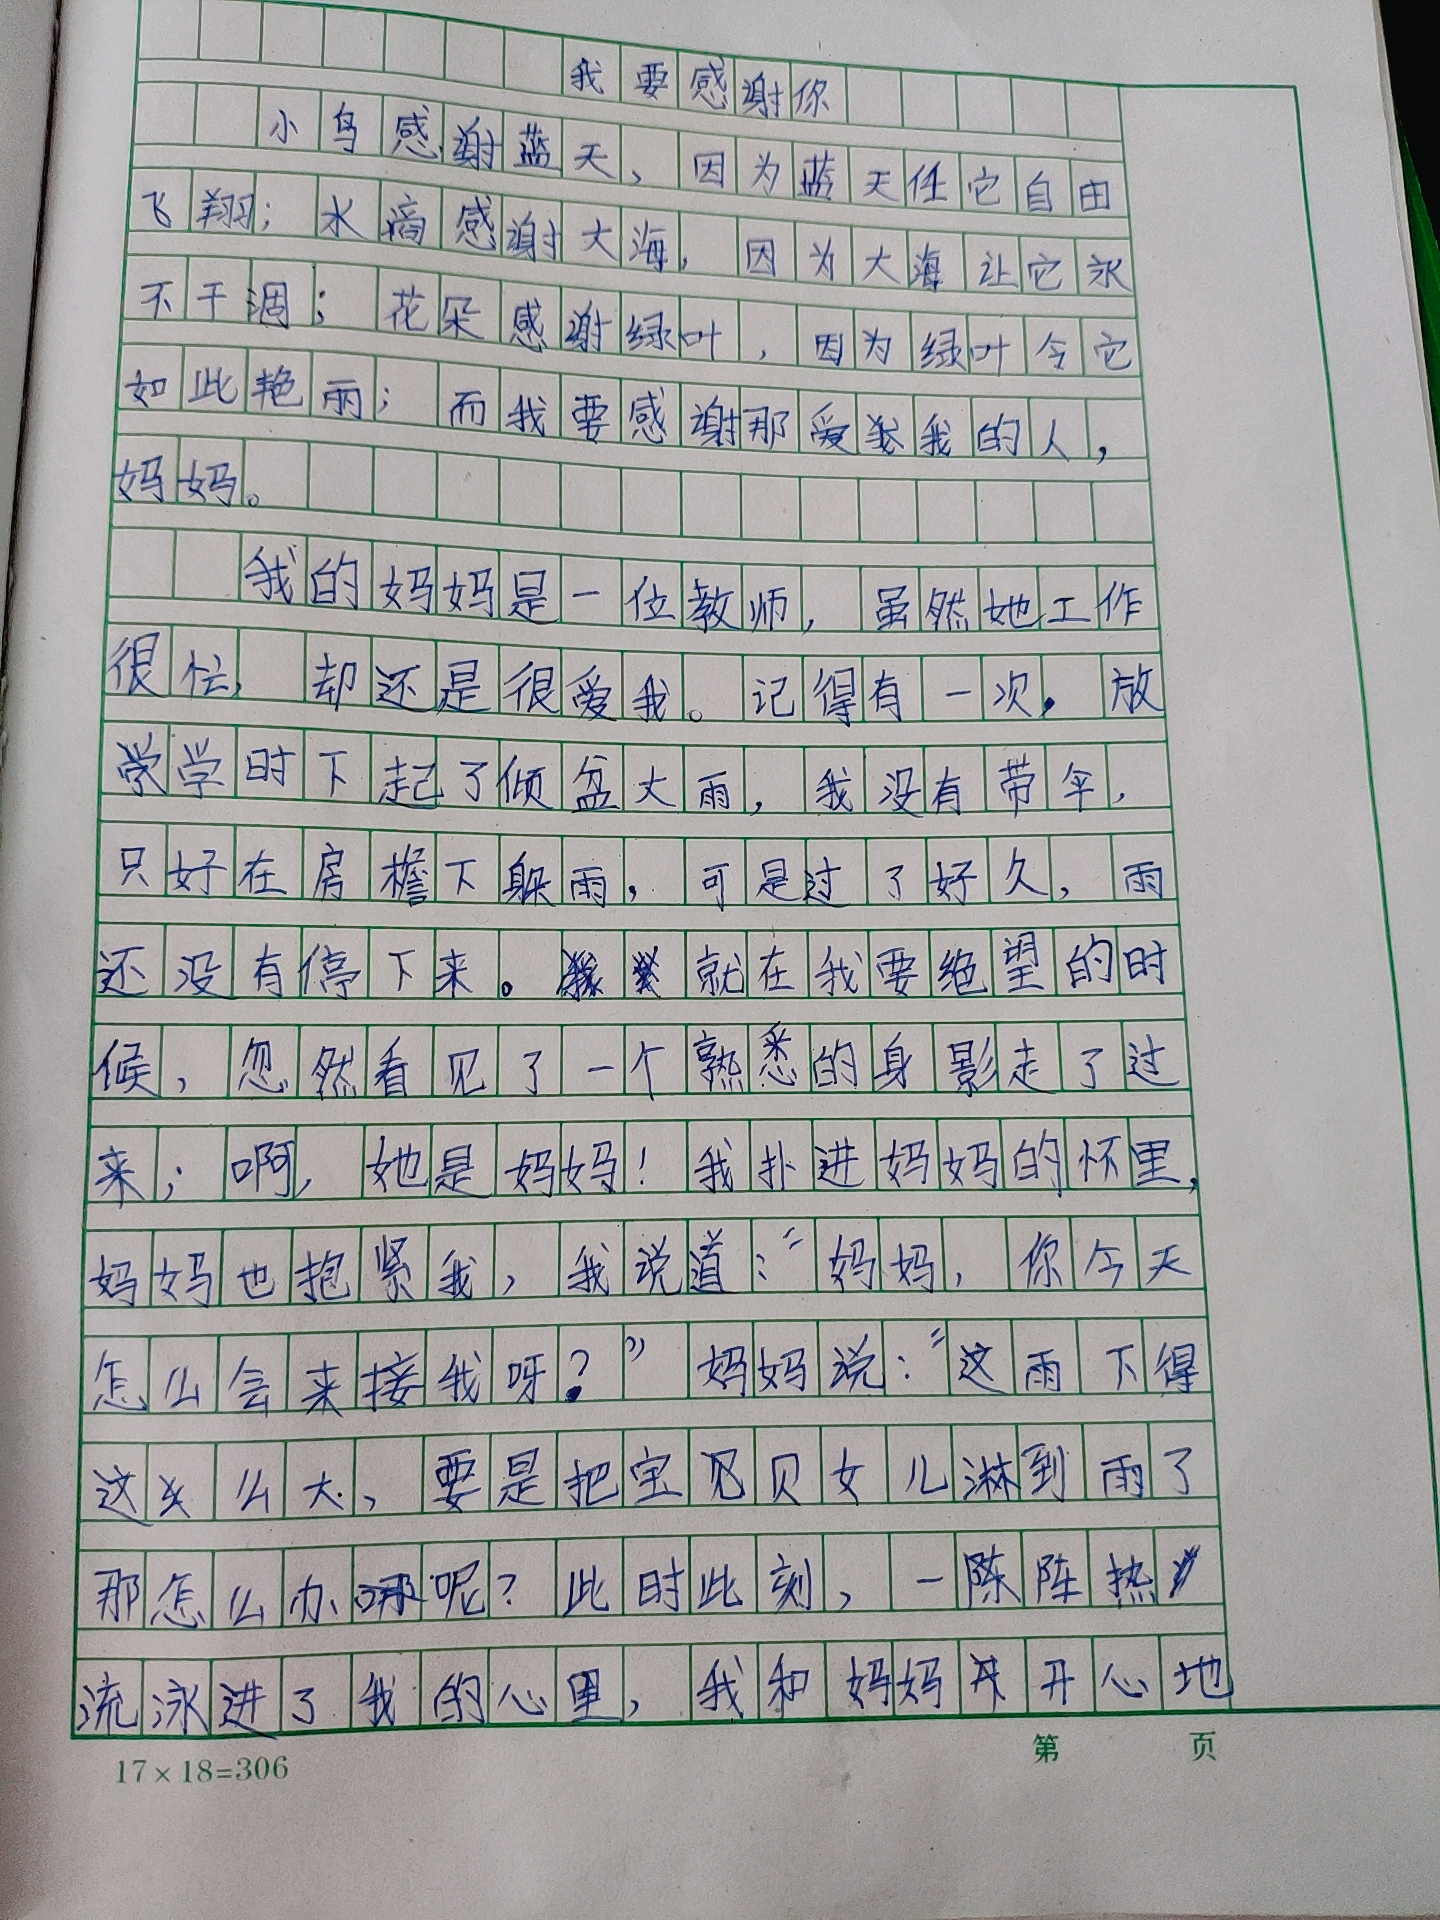 我要感谢你
小鸟感谢蓝天，因为蓝天任它自由
飞翔；水滴感谢大海，因为大海让它永
不干涸；花朵感谢绿叶，因为绿叶令它
如此艳丽；而我要感谢那爱我的人，
妈妈。
我的妈妈是一位教师，虽然她工作
很忙，却还是很爱我。记得有一次，放
学时下起了倾盆大雨，我没有带伞，
只好在房檐下躲雨，可是过了好久，雨
还没有停下来。就在我要绝望的时
候，忽然看见了一个熟悉的身影走了过
来；啊，她是妈妈！我扑进妈妈的怀里，
妈妈也抱紧我，我说道：“妈妈，你今天
怎么会来接我呀？”妈妈说：“这雨下得
这么大，要是把宝贝女儿淋到雨了
那怎么办呢？此时此刻，一阵阵热
流泳进了我的心里，我和妈妈开开心地
17×18=306
第 页